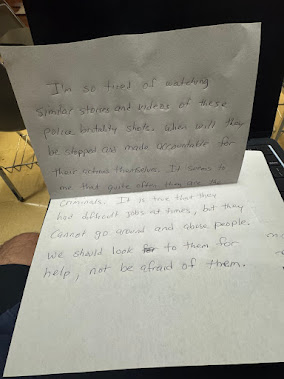 I'm so tired of watching
similar stories and videos of these
police brutality shots. When will they
be stopped and made accountable for
their actions themselves. It seems to
me that quite often they are the
criminals. It is true that they
had difficult jobs at times, but they
cannot go around and abuse people.
We should look to them for
help, not be afraid of them.